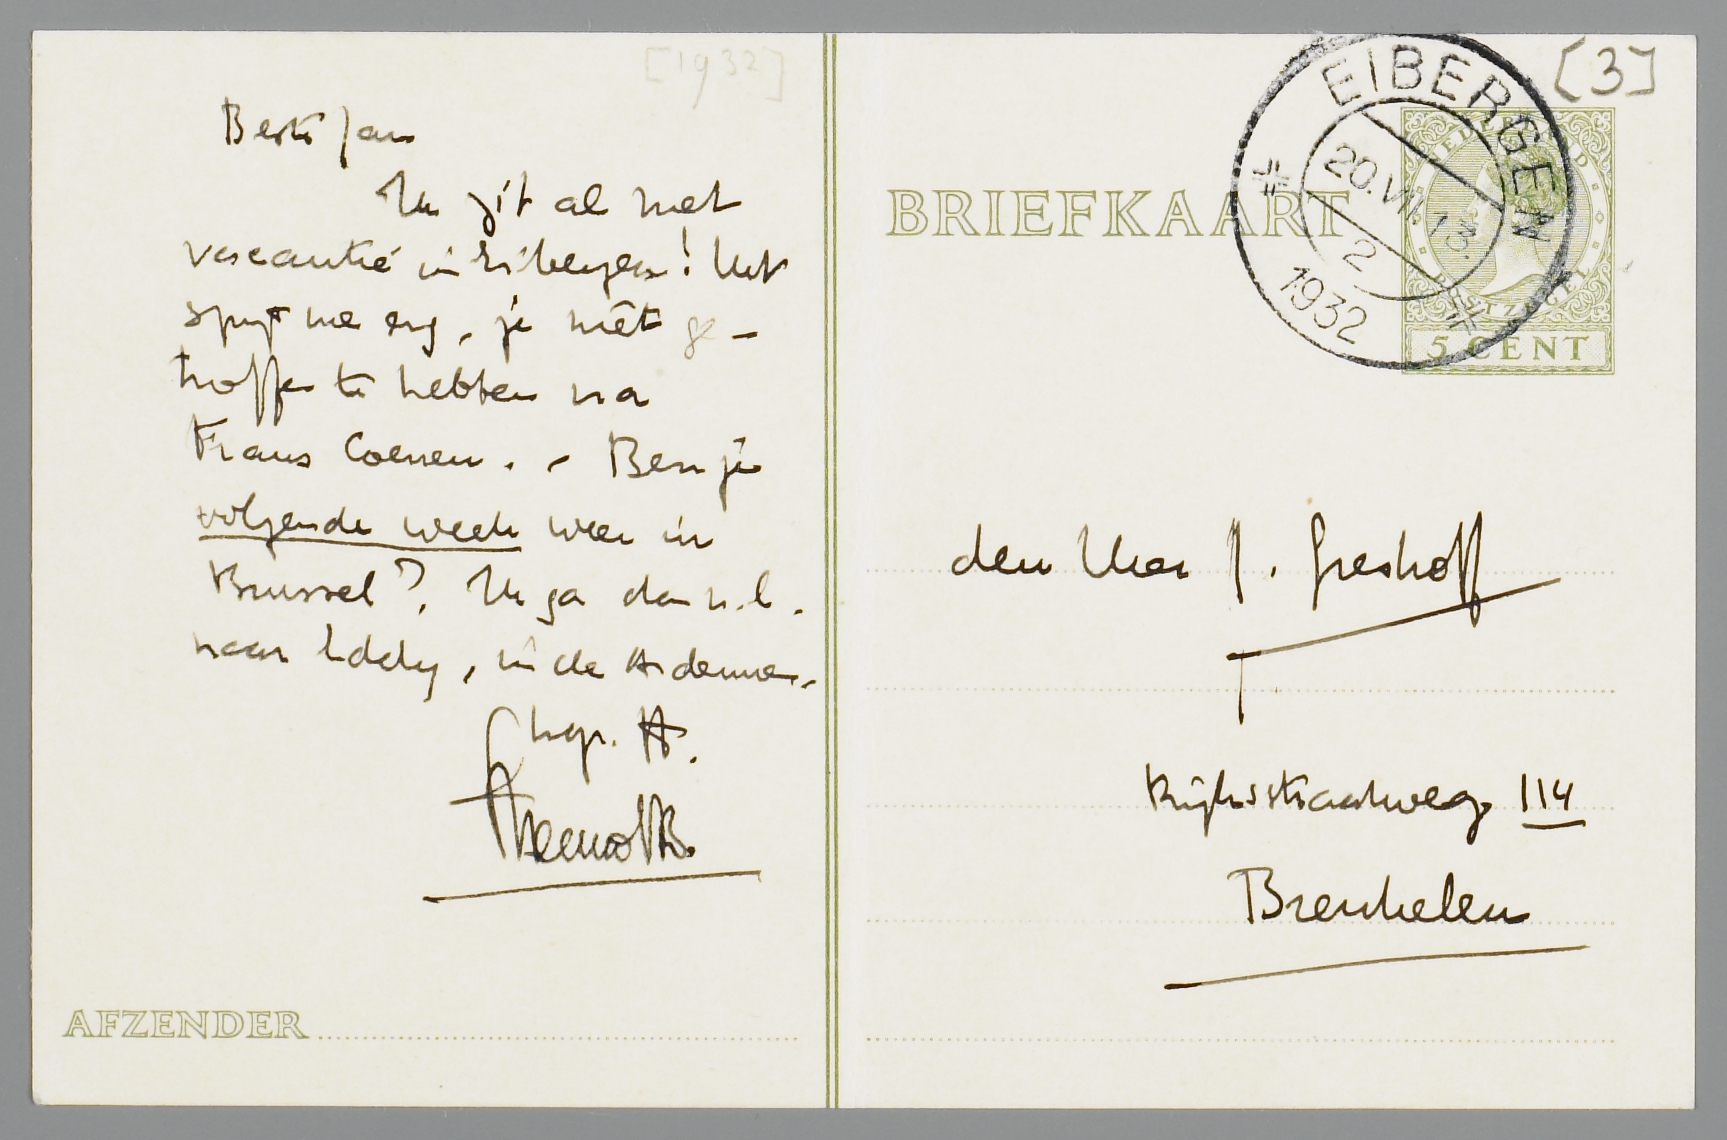 [1932]
Beste Jan
Ik zit al met
vacantie in Eibergen! Het
spijt me erg, je niet ge-
troffen te hebben na
Frans Coenen. - Ben je
volgende week weer in
Brussel? Ik ga dan n.l.
naar Eddy, in de Ardennen.
AFZENDER
[3]
EIBERGEN
20.VII.13.
2
1932
NEDERLAND
POSTZEGEL
5 CENT
BRIEFKAART
den Heer J. Greshoff
Rijksstraatweg 114
Breukelen